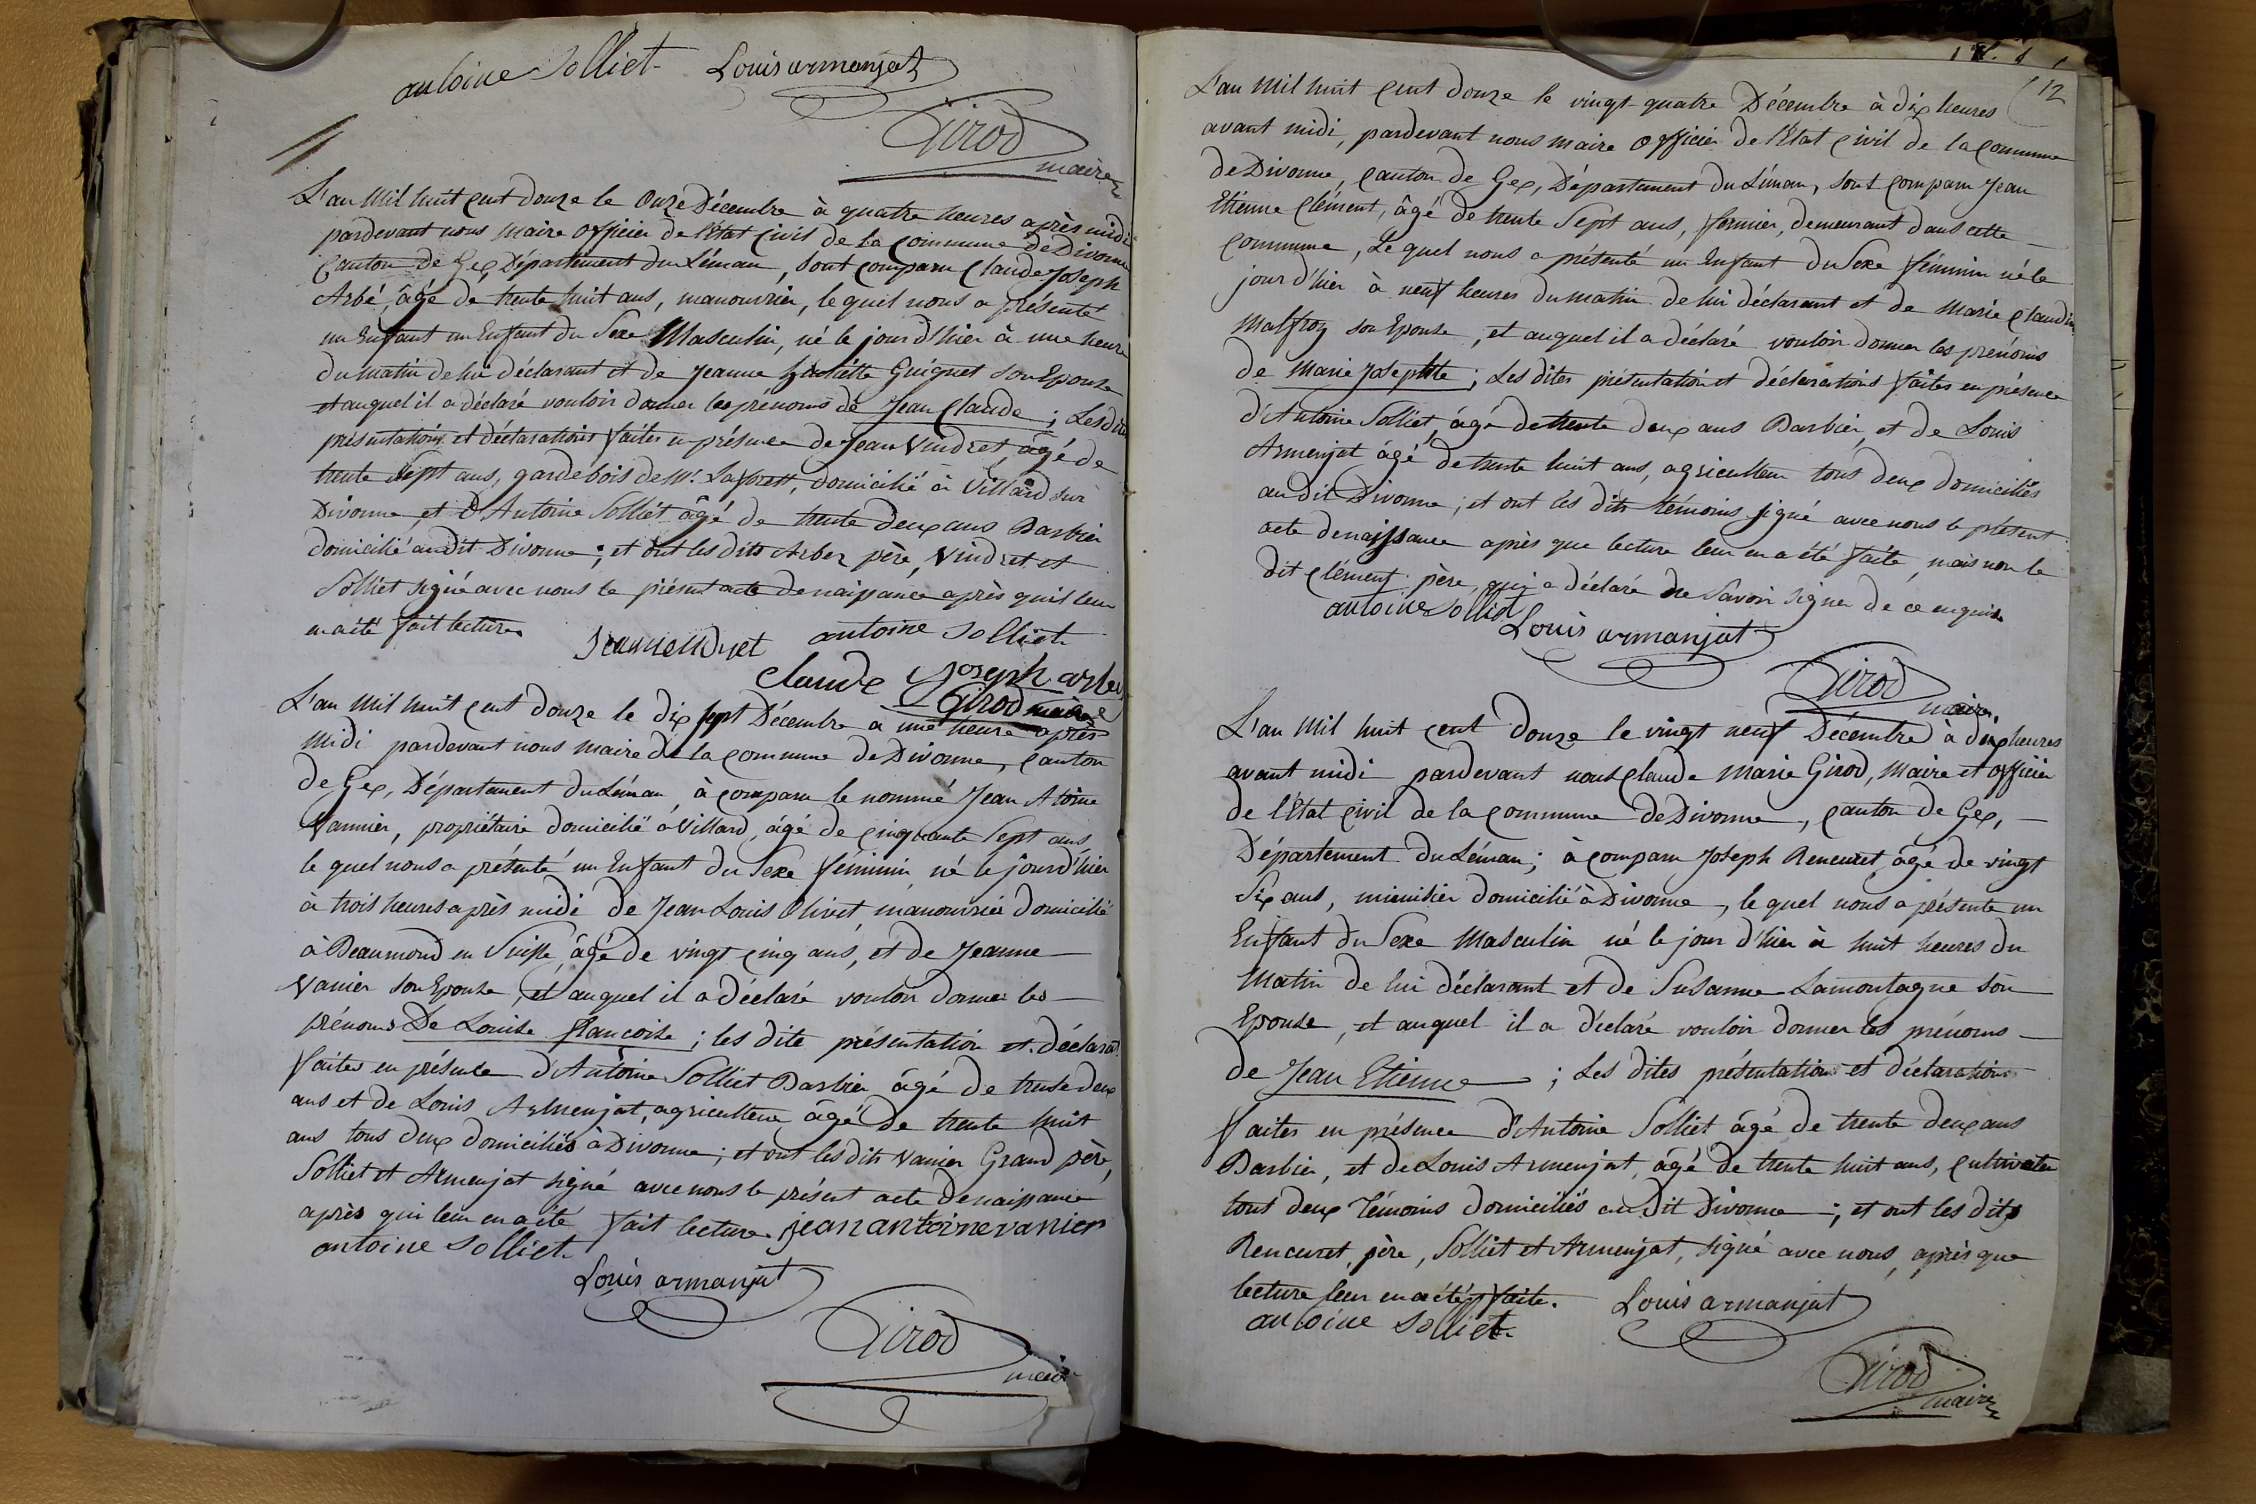 antoine Solliet Louis armanjat
Girod
maire
L'an Mil huit cent douze le Onze Décembre à quatre heures après midi
pardevant nous Maire Officier de l'état Civil de la Commune de Divonne
Canton de Gex Département du Léman, sont comparu Claude Joseph
Arbé, âgé de trente huit ans, manouvrier, le quel nous a présenté
un Enfant un Enfant du Sexe Masculin, né le jour d'hier à une heure
du matin de lui déclarant et de Jeanne Guignet son Epouse
et auquel il a déclaré vouloir donner les prénoms de Jean Claude ; Les dites
présentations et déclarations faites en présence de Jean Vindret, âgé de
trente sept ans, garde bois de Mr. Laforest, domicilié à Villard sur
Divonne, et d'Antoine Solliet âgé de trente deux ans Barbier
domicilié audit Divonne ; et ont les dits Arbez père, Vindret et
Solliet signé avec nous le présent acte de naissance après qu'il leur
en a été fait lecture
antoine Solliet
Claude Joseph arbez
Girod maire
L'an Mil huit Cent douze le dix sept Décembre à une heure après
Midi pardevant nous Maire de la Commune de Divonne, Canton
de Gex, Département du Léman, à comparu le nommé Jean Atoine
Vannier, propriétaire domicilié à Villard, âgé de Cinquante Sept ans
le quel nous a présenté un Enfant du Sexe féminin, né le jour d'hier
à trois heures après midi de Jean Louis Olivet manouvrier domicilié
à Beaumond en Suisse, âgé de vingt cinq ans, et de Jeanne
Vanier son Epouse, et auquel il a déclaré vouloir donner les
prénoms De Louise françoise ; les dite présentation et déclarat.
faites en présence d'Antoine Solliet Barbier âgé de trente deux
ans et de Louis Armenjat, agriculteur âgé de trente huit
ans tous deux domiciliés à Divonne ; et ont les dits Vanier Grand père,
Solliet et Armenjat signé avec nous le présent acte de naissance
après qui leur en a été fait lecture. jean antoine vanier
antoine Solliet
Louis armanjat
Girod
maire
12
L'an Mil huit Cent douze le vingt-quatre Décembre à dix heures
avant midi, pardevant nous Maire Officier de l'Etat Civil de la Commune
de Divonne, Canton de Gex, Département du Léman, sont comparu Jean
Etienne Clément, âgé de trente Sept ans, fermier, demeurant dans cette
Commune, Le quel nous a présenté un Enfant du Sexe féminin né le
jour d'hier à neuf heures du matin de lui déclarant et de Marie Claudin
Malfroy son Epouse, et auquel il a déclaré vouloir donner les prénoms
de Marie Josephte ; Les dites présentation et déclarations faites en présence
d'Antoine Solliet, âgé de trente deux ans Barbier, et de Louis
Armenjat âgé de trente huit ans, agriculteur tous deux domiciliés
audit Divonne ; et ont les dits témoins signé avec nous le présent
acte de naissance après que lecture leur en a été faite, mais non le
dit Clément père qui a déclaré ne Savoir signer de ce enquis
antoine Solliet
Louis armanjat
Girod
maire.
L'an Mil huit cent douze le vingt neuf Décembre à dix heures
avant midi pardevant nous Claude Marie Girod, Maire et Officier
de l'Etat Civil de la Commune de Divonne, Canton de Gex,
Département du Léman ; à comparu Joseph Reneuret âgé de vingt
Six ans, minisier domicilié à Divonne, le quel nous a présenté un
Enfant du Sexe Masculin né le jour d'hier à huit heures du
Matin de lui déclarant et de Susanne Lamontagne son
Epouse, et auquel il a déclaré vouloir donner les prénoms
de Jean Etienne ; Les dites présentations et déclarations
faites en présence d'Antoine Solliet âgé de trente deux ans
Barbier, et de Louis Armenjat, âgé de trente huit ans, Cultivateur
tout deux Témoins domiciliés au Dit Divonne ; et ont les dits
Reneuret, père, Solliet et Armenjat, signé avec nous, après que
lecture leur en a été faite. Louis armanjat
antoine Solliet
Girod
maire